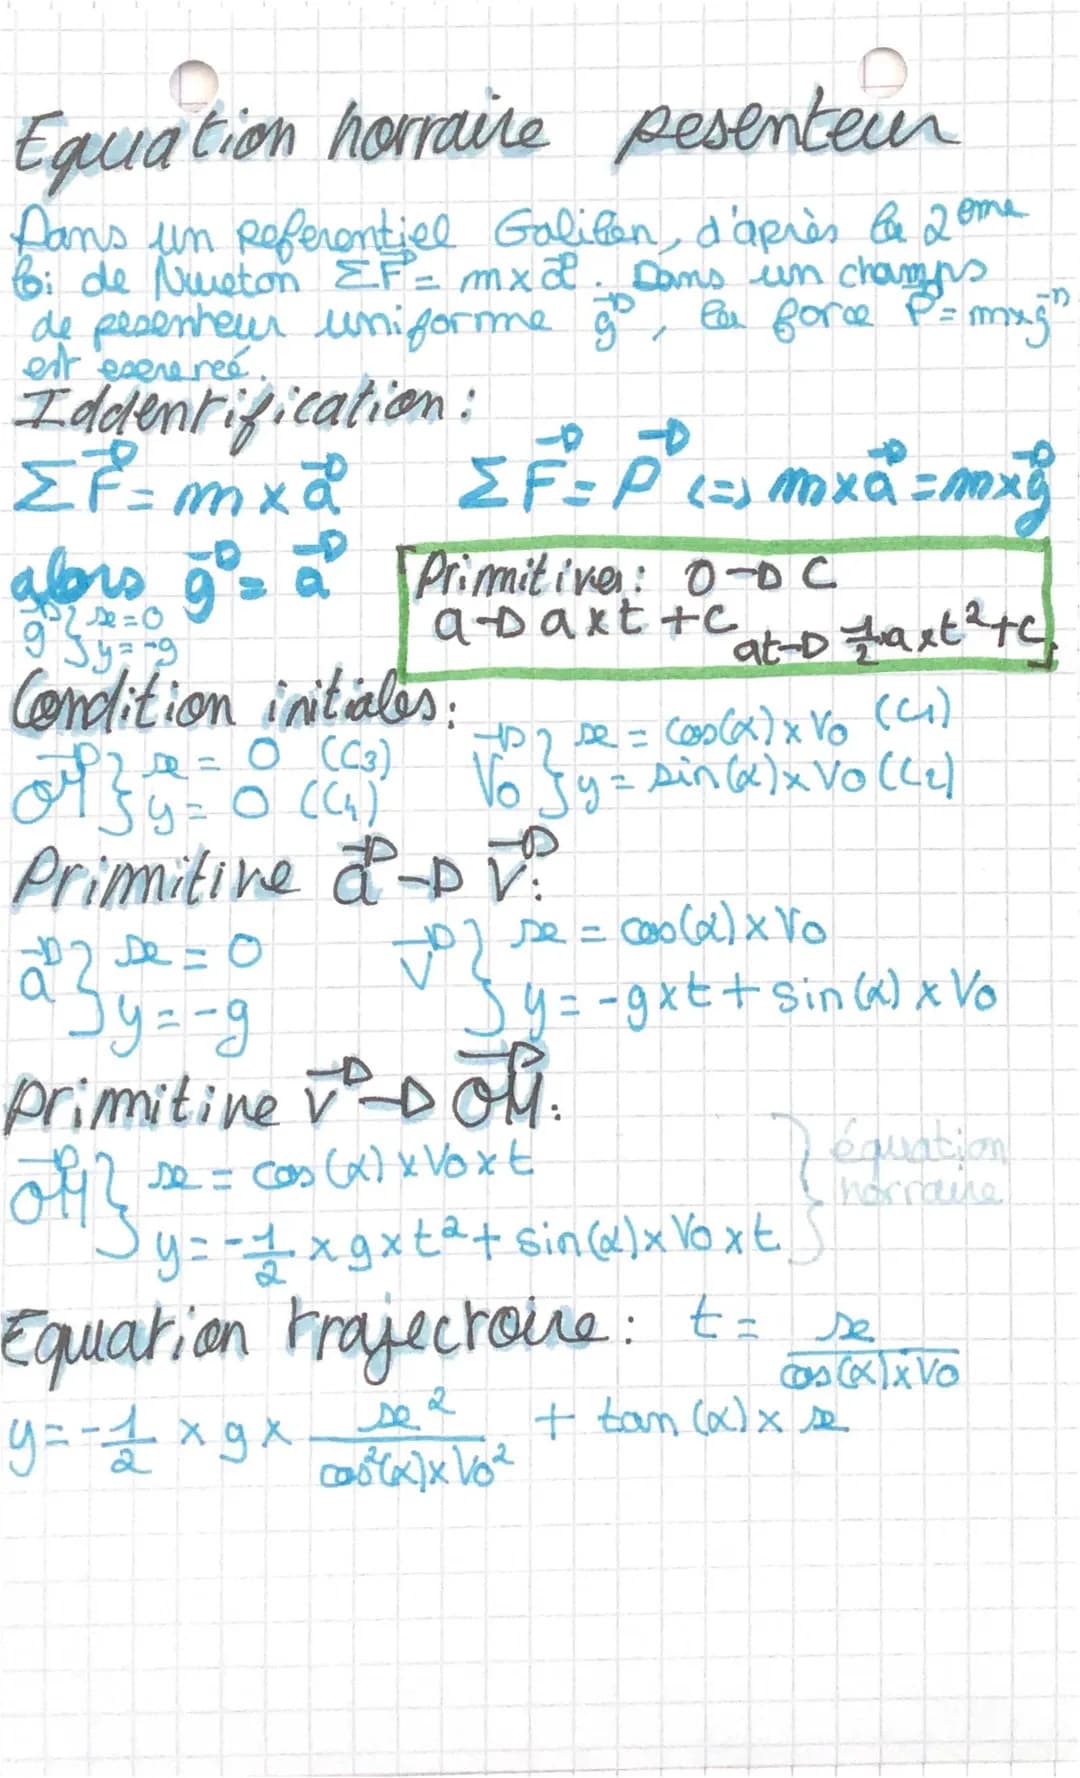 Equation horraire pesenteur
Dans un referentiel Galilen, d'après la 2eme
loi de Nweton ΣF⃗ = m x a⃗. Dans un champs
de pesenteur uniforme g⃗, la force P⃗ = m x g⃗
est exereceé.
Iddentification :
ΣF⃗ = m x a⃗ ΣF⃗ = P⃗ <=> m x a⃗ = m x g⃗
alors g⃗ = a⃗
g⃗ } x = 0
y = -g
Primitives : 0 → C
a → a x t + C
at → 1/2 a x t² + C
Condition initiales :
OM⃗ } x = 0 (C3)
y = 0 (C4)
V⃗o } x = cos(α) x Vo (C1)
y = sin(α) x Vo (C2)
Primitive a⃗ → V⃗ :
a⃗ } x = 0
y = -g
V⃗ } x = cos(α) x Vo
y = -g x t + sin(α) x Vo
Primitive V⃗ → OM⃗ :
OM⃗ } x = cos(α) x Vo x t
y = -1/2 x g x t² + sin(α) x Vo x t
} équation
horraire
Equation trajectoire : t = x / cos(α) x Vo
y = -1/2 x g x x² / cos²(α) x Vo² + tan(α) x x